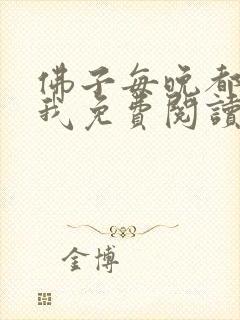 佛子每晚都
我免費閱讀
金博